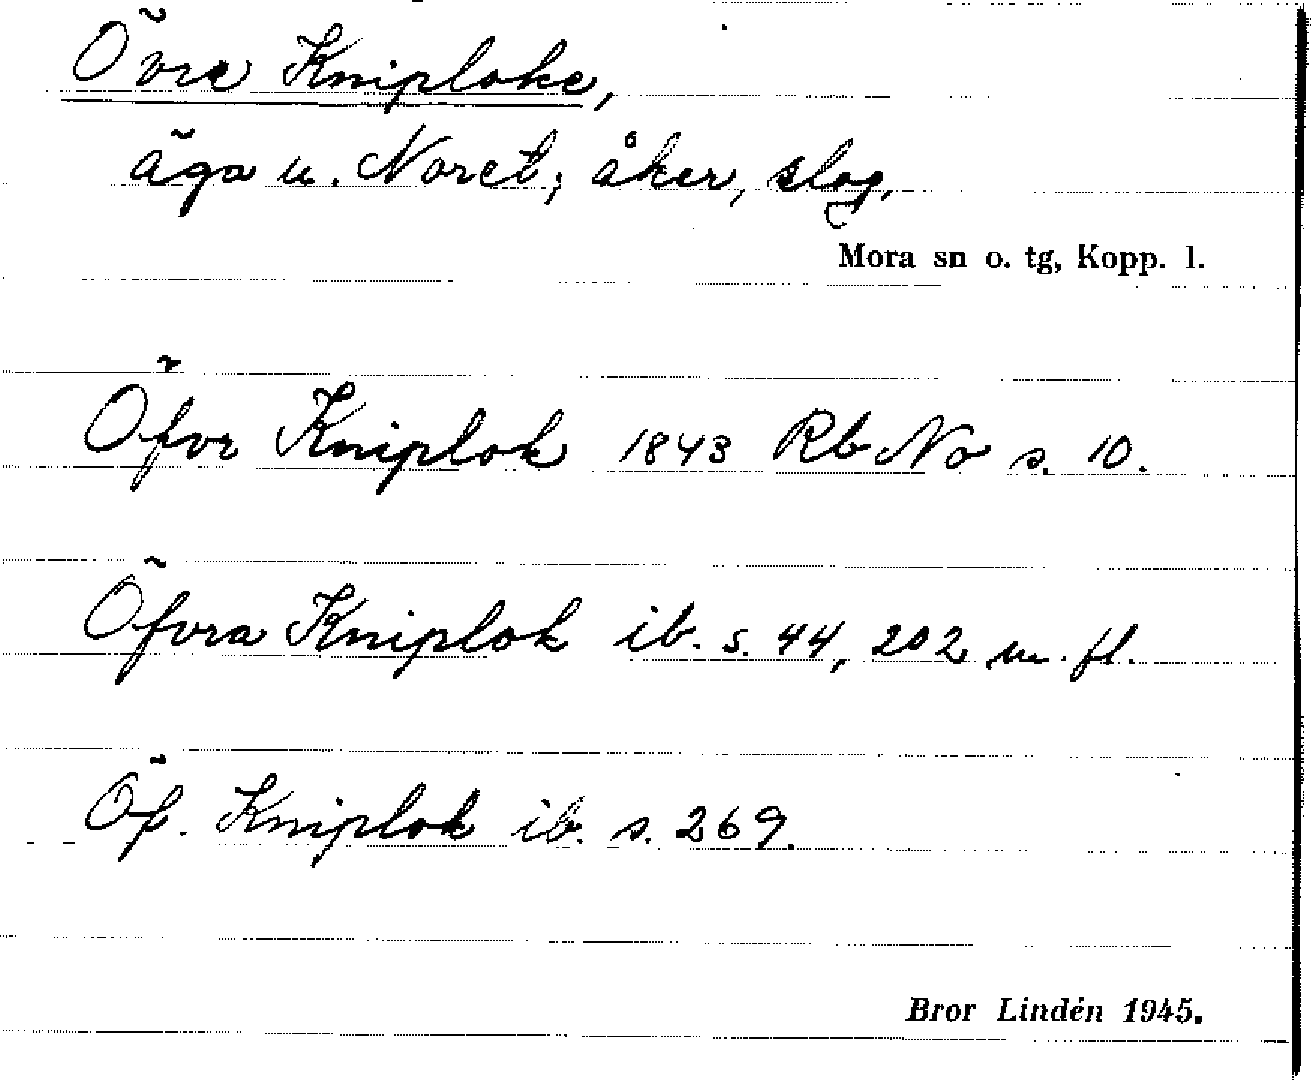 Övre Kniploke,
äga u. Noret; åker, slog.
Mora sn o. tg, Kopp. l.
Öfvr Kniplok 1843 Rb No s. 10.
Öfvra Kniplok ib. s. 44, 202 m. fl.
Öf. Kniplok ib. s. 269.
Bror Lindén 1945.